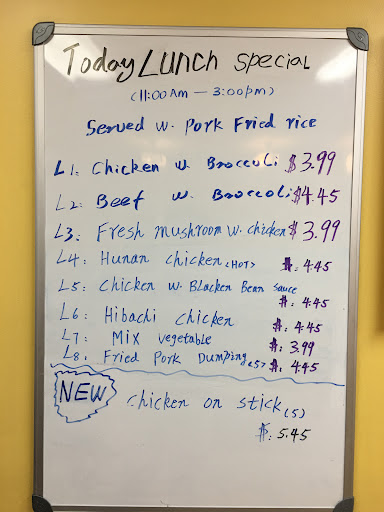 Today Lunch Special
(11:00Am — 3:00pm)
Served w. Pork Fried rice
L1. Chicken w. Broccoli $3.99
L2. Beef w. Broccoli $4.45
L3. Fresh mushroom w. chicken $3.99
L4. Hunan chicken <HOT> $. 4.45
L5. Chicken w. Blacken Bean sauce
$. 4.45
L6. Hibachi chicken $. 4.45
L7. Mix vegetable $. 3.99
L8. Fried Pork Dumping (5) $. 4.45
NEW chicken on stick (5)
$. 5.45